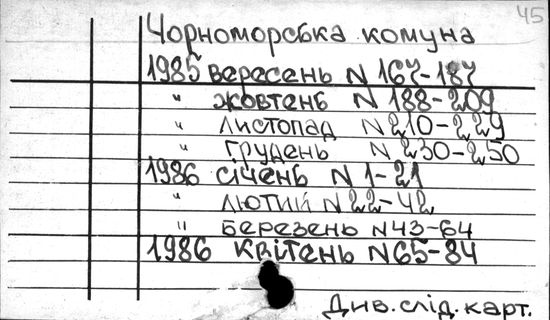 45
Чорноморська комуна
1985 вересень N 167-187
" жовтень N 188-209
" листопад N 210-229
" грудень N 230-250
1986 січень N 1-21
" лютий N 22-42
" березень N 43-64
1986 квітень N 65-84
Див. слід. карт.